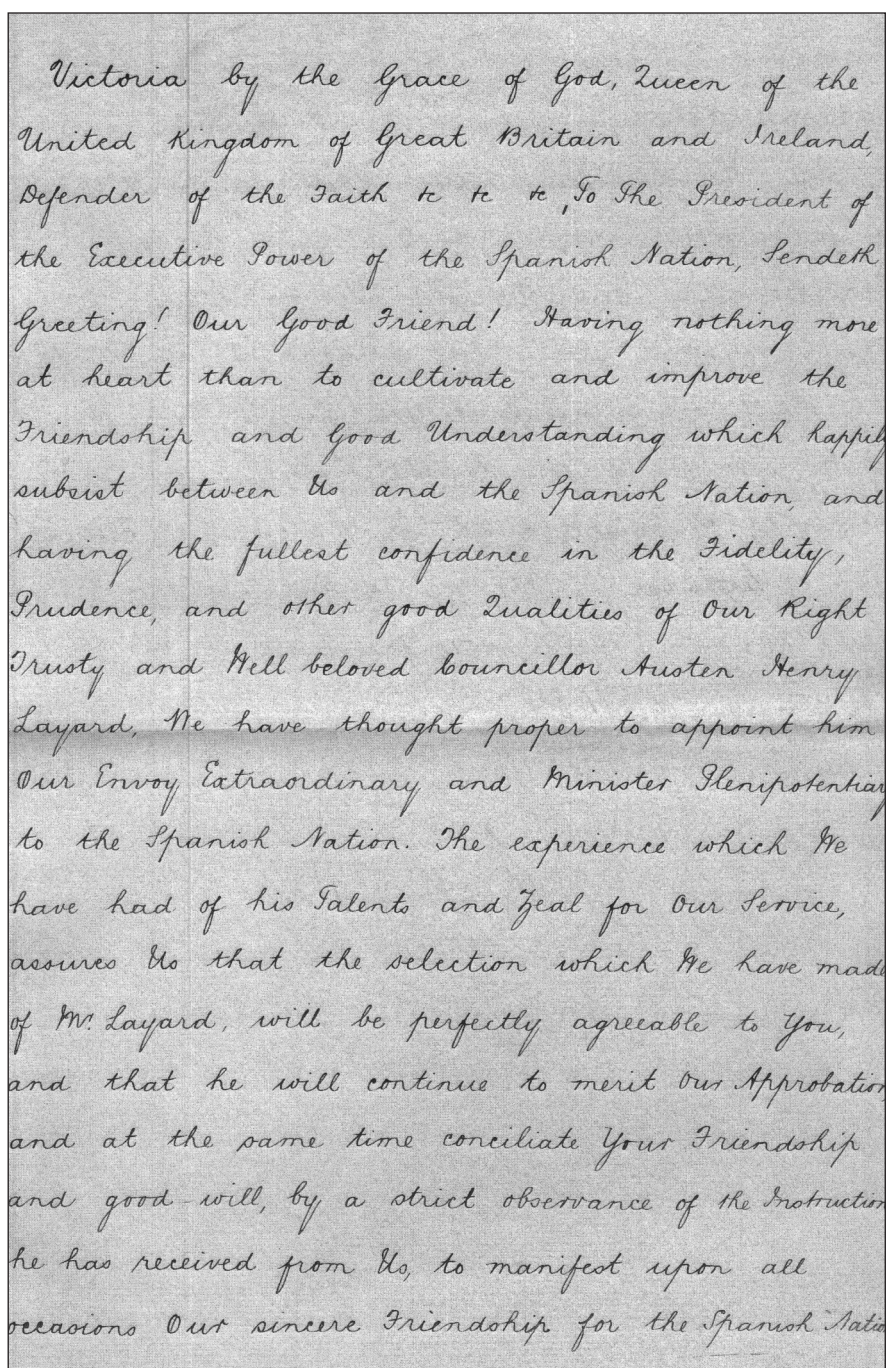 Victoria by the Grace of God, Queen of the
United Kingdom of Great Britain and Ireland,
Defender of the Faith &c &c &c, To The President of
the Executive Power of the Spanish Nation, Sendeth
Greeting! Our Good Friend! Having nothing more
at heart than to cultivate and improve the
Friendship and Good Understanding which happily
subsist between Us and the Spanish Nation, and
having the fullest confidence in the Fidelity,
Prudence, and other good Qualities of Our Right
Trusty and Well beloved Councillor Austen Henry
Layard, We have thought proper to appoint him
Our Envoy Extraordinary and Minister Plenipotentiary
to the Spanish Nation. The experience which We
have had of his Talents and Zeal for Our Service,
assures Us that the selection which We have made
of Mr. Layard, will be perfectly agreeable to You,
and that he will continue to merit Our Approbation,
and at the same time conciliate Your Friendship
and good-will, by a strict observance of the Instruction
he has received from Us, to manifest upon all
occasions Our sincere Friendship for the Spanish Natio